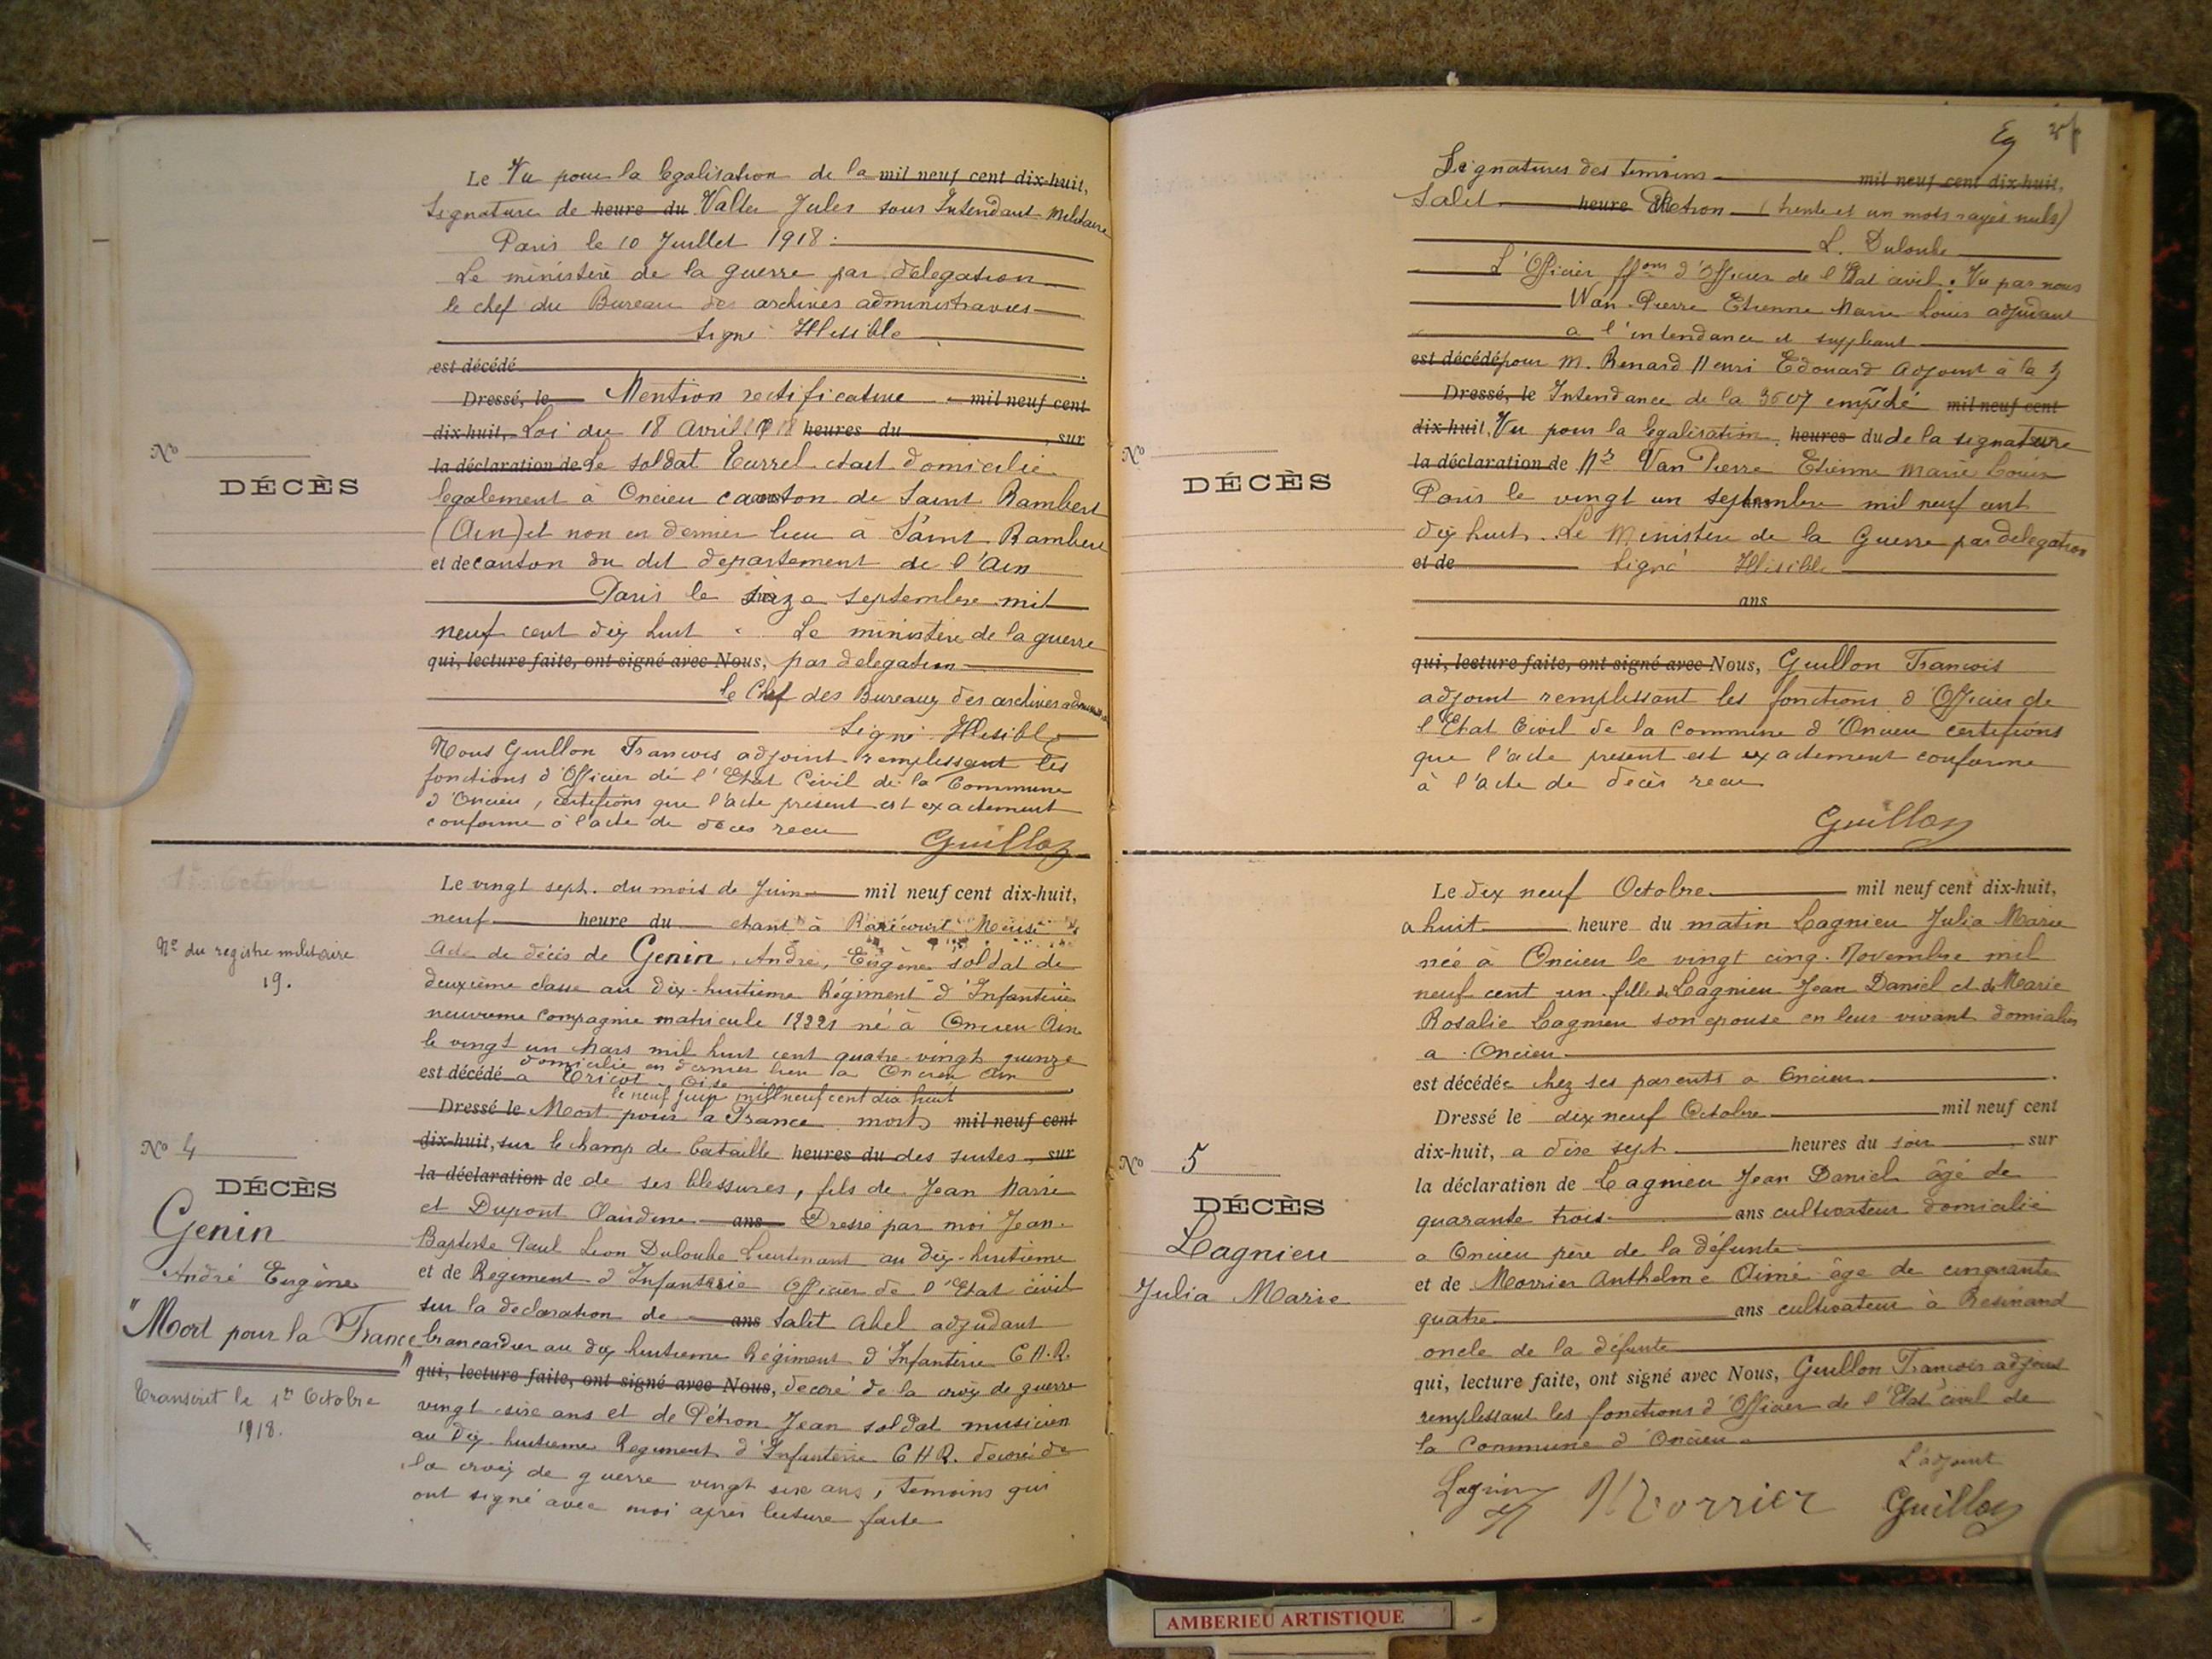 Le Vu pour la legalisation de la mil neuf cent dix-huit,
Signature de heure du Valter Jules sous Intendant Militaire
Paris le 10 Juillet 1918.
Le ministere de la guerre par delegation
le chef du Bureau des archives administraves
Signé Illisible
est décédé
Dressé, le Mention rectificative mil neuf cent
dix-huit, Loi du 18 Avril 1918 heures du sur
la déclaration de Le soldat Turrel etait domicilié
legalement à Oncieu canton de Saint Rambert
(Ain) et non en dernier lieu à Saint Rambert
et de canton du dit departement de l'Ain
Paris le seize septembre mil
neuf cent dix huit. Le ministère de la guerre
qui, lecture faite, ont signé avec Nous, par delegation
le Chef des Bureaux des archives
Signé Illisible
Nous Guillon Francois adjoint remplissant les
fonctions d'Officier de l'Etat Civil de la Commune
d'Oncieu, certifions que l'acte présent est exactement
conforme à l'acte de décès recu
Guillon
No
DÉCÈS
1er Octobre
No du registre militaire
19.
No 4
DÉCÈS
Genin
André Eugène
"Mort pour la France"
Transcrit le 1er Octobre
1918.
Le vingt sept. du mois de Juin mil neuf cent dix-huit,
neuf heure du etant à Meuse
Acte de décès de Genin, André, Eugène soldat de
deuxième classe au dix-huitième Régiment d'Infanterie
neuvieme Compagnie matricule né à Oncieu Ain
le vingt un Mars mil huit cent quatre-vingt quinze
domicilié en dernier lieu à Oncieu Ain
est décédé a Tricot Oise
le neuf Juin mil neuf cent dix huit
Dressé le Mort pour la France mort mil neuf cent
dix-huit, sur le champ de bataille heures du des suites sur
la déclaration de de ses blessures, fils de Jean Marie
et Dupont Claudine ans Dressé par moi Jean
Baptiste Paul Leon Duloube Lieutenant au dix-huitieme
et de Regiment d'Infanterie Officier de l'Etat civil
sur la declaration de ans Salet Abel adjudant
brancardier au dix huitieme Régiment d'Infanterie C.H.R.
qui, lecture faite, ont signé avec Nous, decoré de la croix de guerre
vingt six ans et de Pétron Jean soldat musicien
au dix huitieme Regiment d'Infanterie C H R. decoré de
la croix de guerre vingt six ans, temoins qui
ont signé avec moi après lecture faite
Signatures des temoins mil neuf cent dix-huit,
Salet heure Pétron (trente et un mots rayés nuls)
L. Duloube
L'Officier ffons d'Officier de l'Etat civil. Vu par nous
Wan Pierre Etienne Marie Louis adjudant
a l'intendance et suppleant
est décédé pour M. Renard Henri Edouard adjoint à la
Dressé, le Intendance de la empêché mil neuf cent
dix-huit, Vu pour la legalisation heures du de la signature
la déclaration de Van Pierre Etienne Marie Louis
Paris le vingt un septembre mil neuf cent
dix huit. Le Ministere de la Guerre par delegation
et de Signé Illisible
ans
qui, lecture faite, ont signé avec Nous, Guillon Francois
adjoint remplissant les fonctions d'Officier de
l'Etat Civil de la Commune d'Oncieu certifions
que l'acte present est exactement conforme
à l'acte de decès recu
Guillon
No
DÉCÈS
No 5
DÉCÈS
Lagnieu
Julia Marie
Le dix neuf Octobre mil neuf cent dix-huit,
a huit heure du matin Lagnieu Julia Marie
née à Oncieu le vingt cinq Novembre mil
neuf cent un fille de Lagnieu Jean Daniel et de Marie
Rosalie Lagnieu son epouse en leur vivant domiciliés
a Oncieu
est décédée chez ses parents a Oncieu
Dressé le dix neuf Octobre mil neuf cent
dix-huit, a dixe sept heures du soir sur
la déclaration de Lagnieu Jean Daniel âgé de
quarante trois ans cultivateur domicilié
a Oncieu père de la défunte
et de Morrier Anthelme Aimé âge de cinquante
quatre ans cultivateur à Resinand
oncle de la défunte
qui, lecture faite, ont signé avec Nous, Guillon Francois adjoint
remplissant les fonctions d'Officier de l'Etat civil de
la Commune d'Oncieu
L'adjoint
Morrier Guillon
AMBERIEU ARTISTIQUE